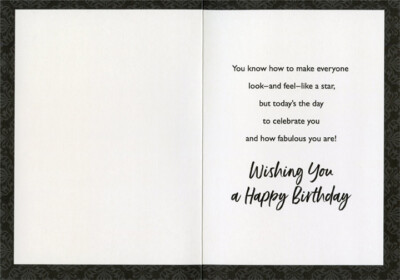 You know how to make everyone
look—and feel—like a star,
but today's the day
to celebrate you
and how fabulous you are!
Wishing You
a Happy Birthday